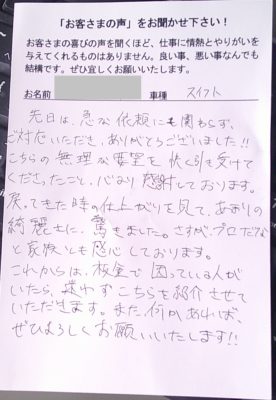 「お客さまの声」をお聞かせ下さい！
お客さまの喜びの声を聞くほど、仕事に情熱とやりがいを
与えてくれるものはありません。良い事、悪い事なんでも
結構です。ぜひ宜しくお願いいたします。
お名前 車種 スイフト
先日は、急な依頼にも関わらず、
ご対応いただき、ありがとうございました!!
こちらの無理な要望を快く引き受けて
くださったこと、心より感謝しております。
戻ってきた時の仕上がりを見て、あまりの
綺麗さに、驚きました。さすが、プロだな
と家族とも感心しております。
これからは、板金で困っている人が
いたら、迷わずこちらを紹介させて
いただきます。また、何かあれば、
ぜひよろしくお願いいたします!!